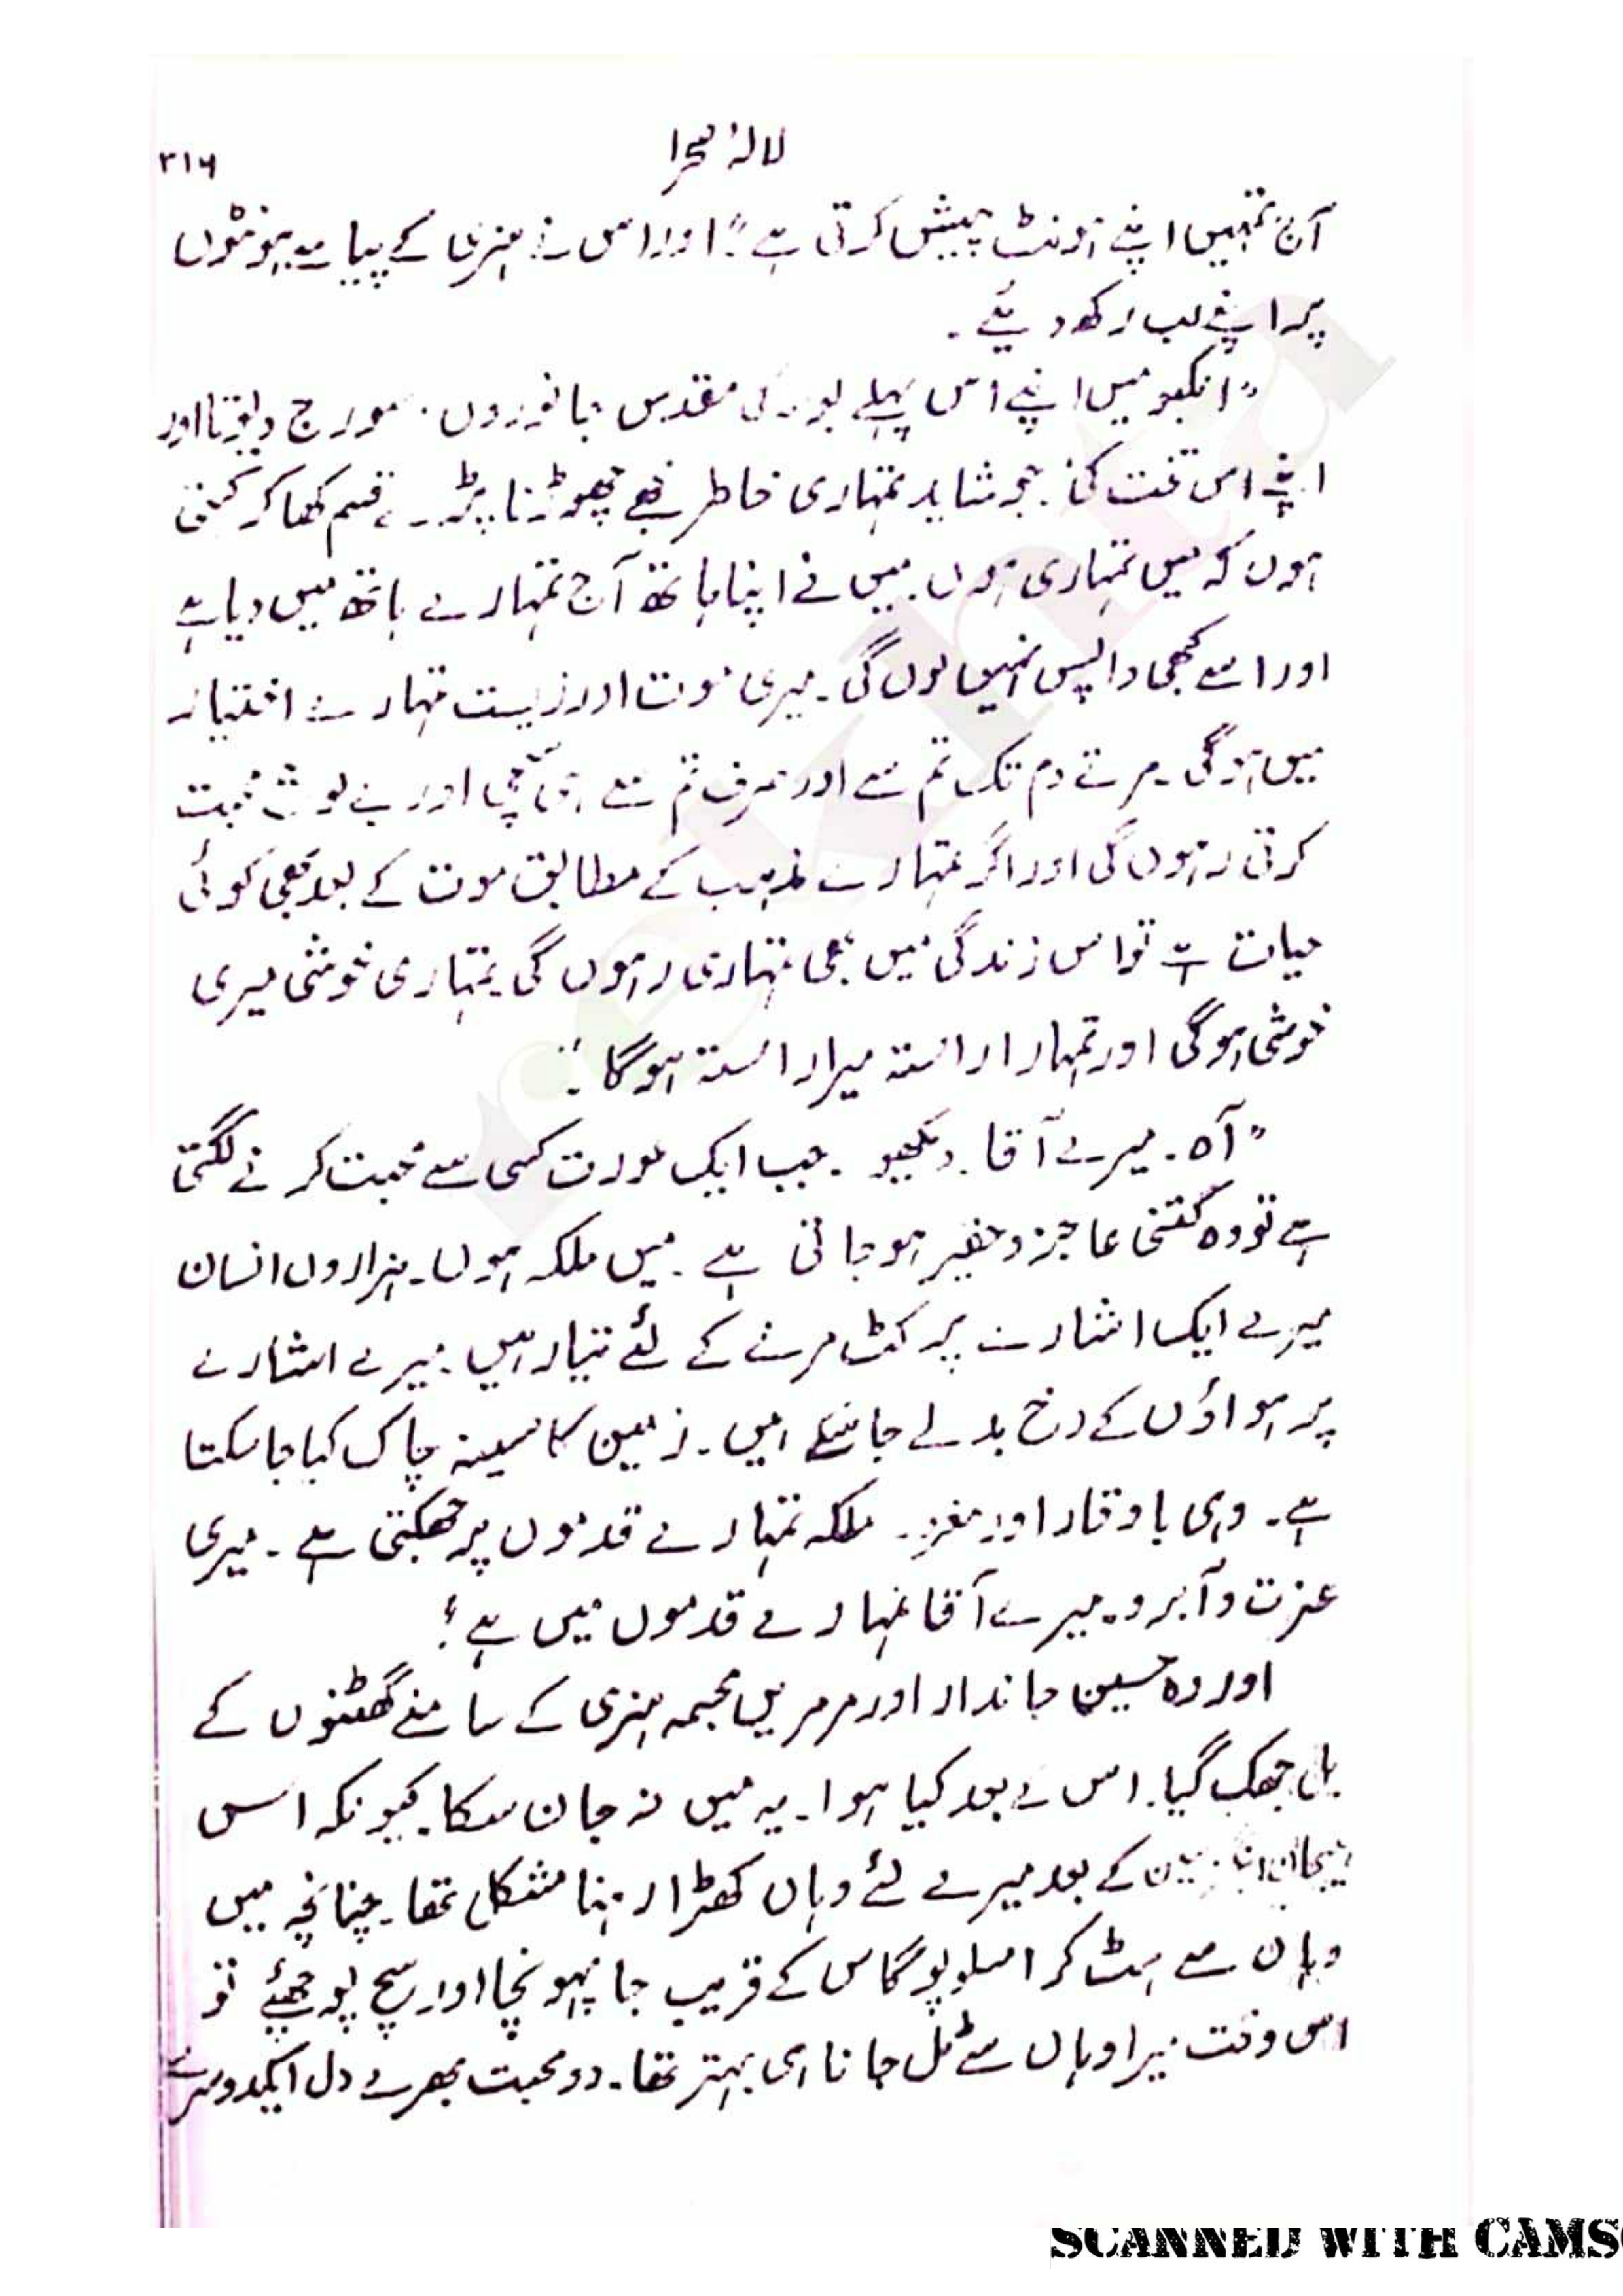 لالۂ صحرا
۳۱۶
آج تمہیں اپنے ہونٹ پیش کرتی ہے" اور اس نے ہنری کے پیاسے ہونٹوں
پر اپنے لب رکھ دیئے۔
"انکبو میں اپنے اس پہلے بوسے کی مقدس جانوروں۔ سورج دیوتا اور
اپنے اس تخت کی جو شاید تمہاری خاطر مجھے چھوڑنا پڑے قسم کھا کر کہتی
ہوں کہ میں تمہاری ہوں۔ میں نے اپنا ہاتھ آج تمہارے ہاتھ میں دیا ہے
اور اسے کبھی واپس نہیں لوں گی۔ میری موت اور زیست تمہارے اختیار
میں ہوگی۔ مرتے دم تک تم سے اور صرف تم سے ہی سچی اور بے لوث محبت
کرتی رہوں گی اور اگر تمہارے مذہب کے مطابق موت کے بعد بھی کوئی
حیات ہے تو اس زندگی میں بھی تمہاری رہوں گی۔ تمہاری خوشی میری
خوشی ہوگی اور تمہارا راستہ میرا راستہ ہوگا"۔
"آہ۔ میرے آقا۔ دیکھو۔ جب ایک عورت کسی سے محبت کرنے لگتی
ہے تو وہ کتنی عاجز و حقیر ہو جاتی ہے۔ میں ملکہ ہوں۔ ہزاروں انسان
میرے ایک اشارے پر کٹ مرنے کے لئے تیار ہیں۔ میرے اشارے
پر ہواؤں کے رخ بدلے جا سکتے ہیں۔ زمین کا سینہ چاک کیا جا سکتا
ہے۔ وہی باوقار اور مغرور ملکہ تمہارے قدموں پر جھکتی ہے۔ میری
عزت و آبرو۔ میرے آقا تمہارے قدموں میں ہے!
اور وہ حسین جاندار اور مرمریں مجسمہ ہنری کے سامنے گھٹنوں کے
بل جھک گیا۔ اس کے بعد کیا ہوا۔ یہ میں نہ جان سکا۔ کیونکہ اس
کے بعد میرے لئے وہاں کھڑا رہنا مشکل تھا۔ چنانچہ میں
وہاں سے ہٹ کر امسلوپوگاس کے قریب جا پہونچا اور سچ پوچھئے تو
اس وقت میرا وہاں سے ٹل جانا ہی بہتر تھا۔ دو محبت بھرے دل ایکدوسرے
SCANNED WITH CAMS